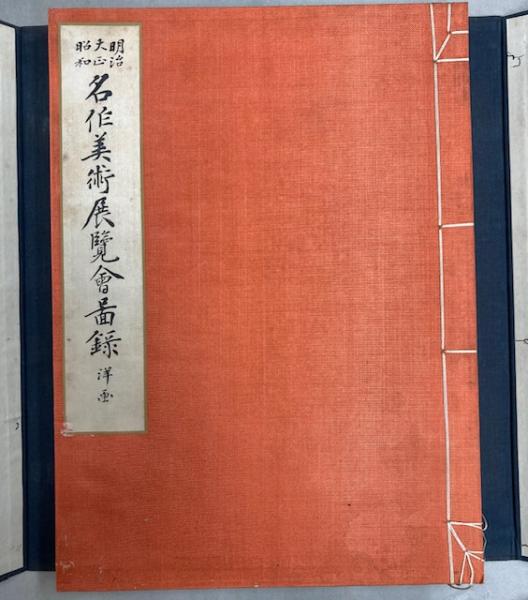 明治
大正
昭和
名作美術展覽會啚錄
洋画